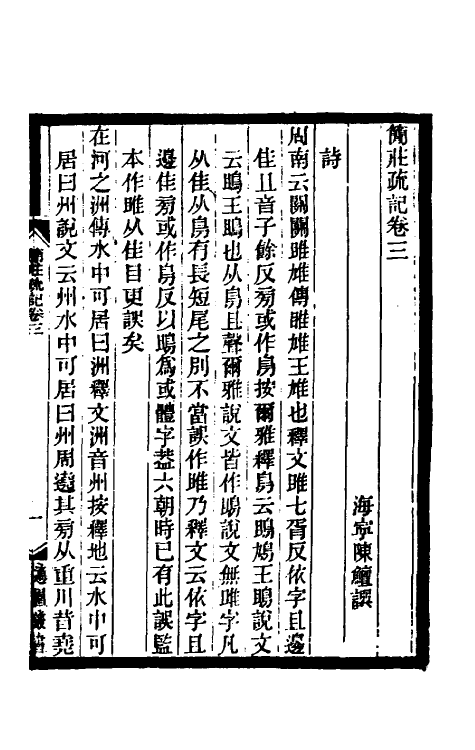 簡莊疏記卷三
海寧陳鱣譔
詩
周南云關關雎雄傳雎雄王雄也釋文雎七胥反依字且邊
隹且音子餘反旁或作鳥按爾雅釋鳥云鴡鳩王鴡說文
云鴡王鴡也从鳥且聲爾雅說文皆作鴡說文無雎字凡
从隹从鳥有長短尾之別不當誤作雎乃釋文云依字且
邊隹旁或作鳥反以鴡為或體字葢六朝時已有此誤監
本作睢从隹目更誤矣
在河之洲傳水中可居曰洲釋文洲音州按釋地云水中可
居曰州說文云州水中可居曰州周遶其旁从重川昔堯
簡莊疏記卷三
一
適園叢書